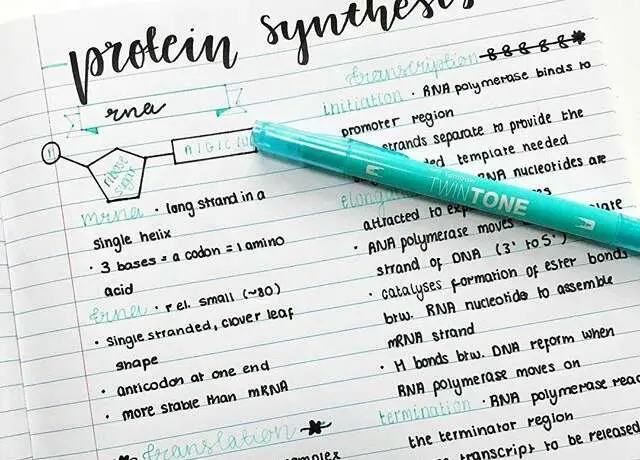 protein synthesis
rna
ribose
sugar
A | G | C | U
mrna • long strand in a
single helix
• 3 bases = a codon = 1 amino
acid
trna • rel. small (~80)
• single stranded, clover leaf
shape
• anticodon at one end
• more stable than mRNA
translation
transcription
initiation • RNA polymerase binds to
promoter region
strands separate to provide the
template needed
RNA nucleotides are
attracted to
• RNA polymerase moves
strand of DNA (3' to 5')
• catalyses formation of ester bonds
btw. RNA nucleotide to assemble
mRNA strand
• H bonds btw. DNA reform when
RNA polymerase moves on
termination • RNA polymerase
the terminator region
transcript to be released
TWINTONE